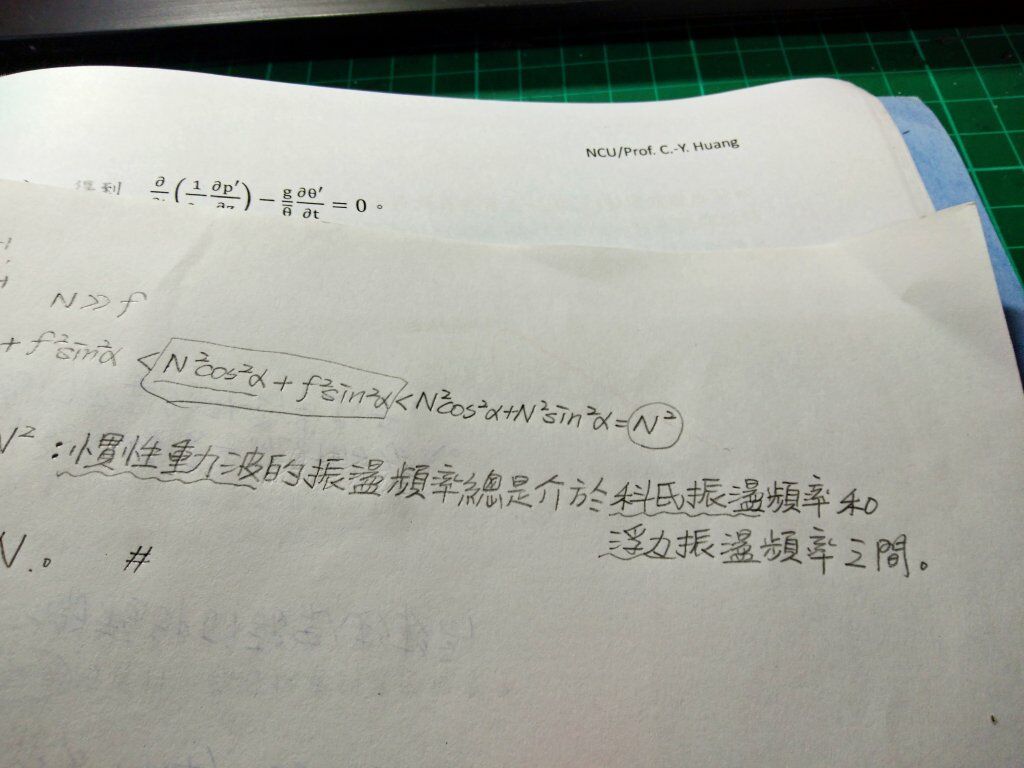 NCU/Prof. C.-Y. Huang
得到 ∂/∂t (1/ρ̄ ∂p′/∂z) − g/θ̄ ∂θ′/∂t = 0。
N ≫ f
+ f²sin²α < N²cos²α + f²sin²α < N²cos²α + N²sin²α = N²
N² : 慣性重力波的振盪頻率總是介於科氏振盪頻率和
浮力振盪頻率之間。
N.。 #